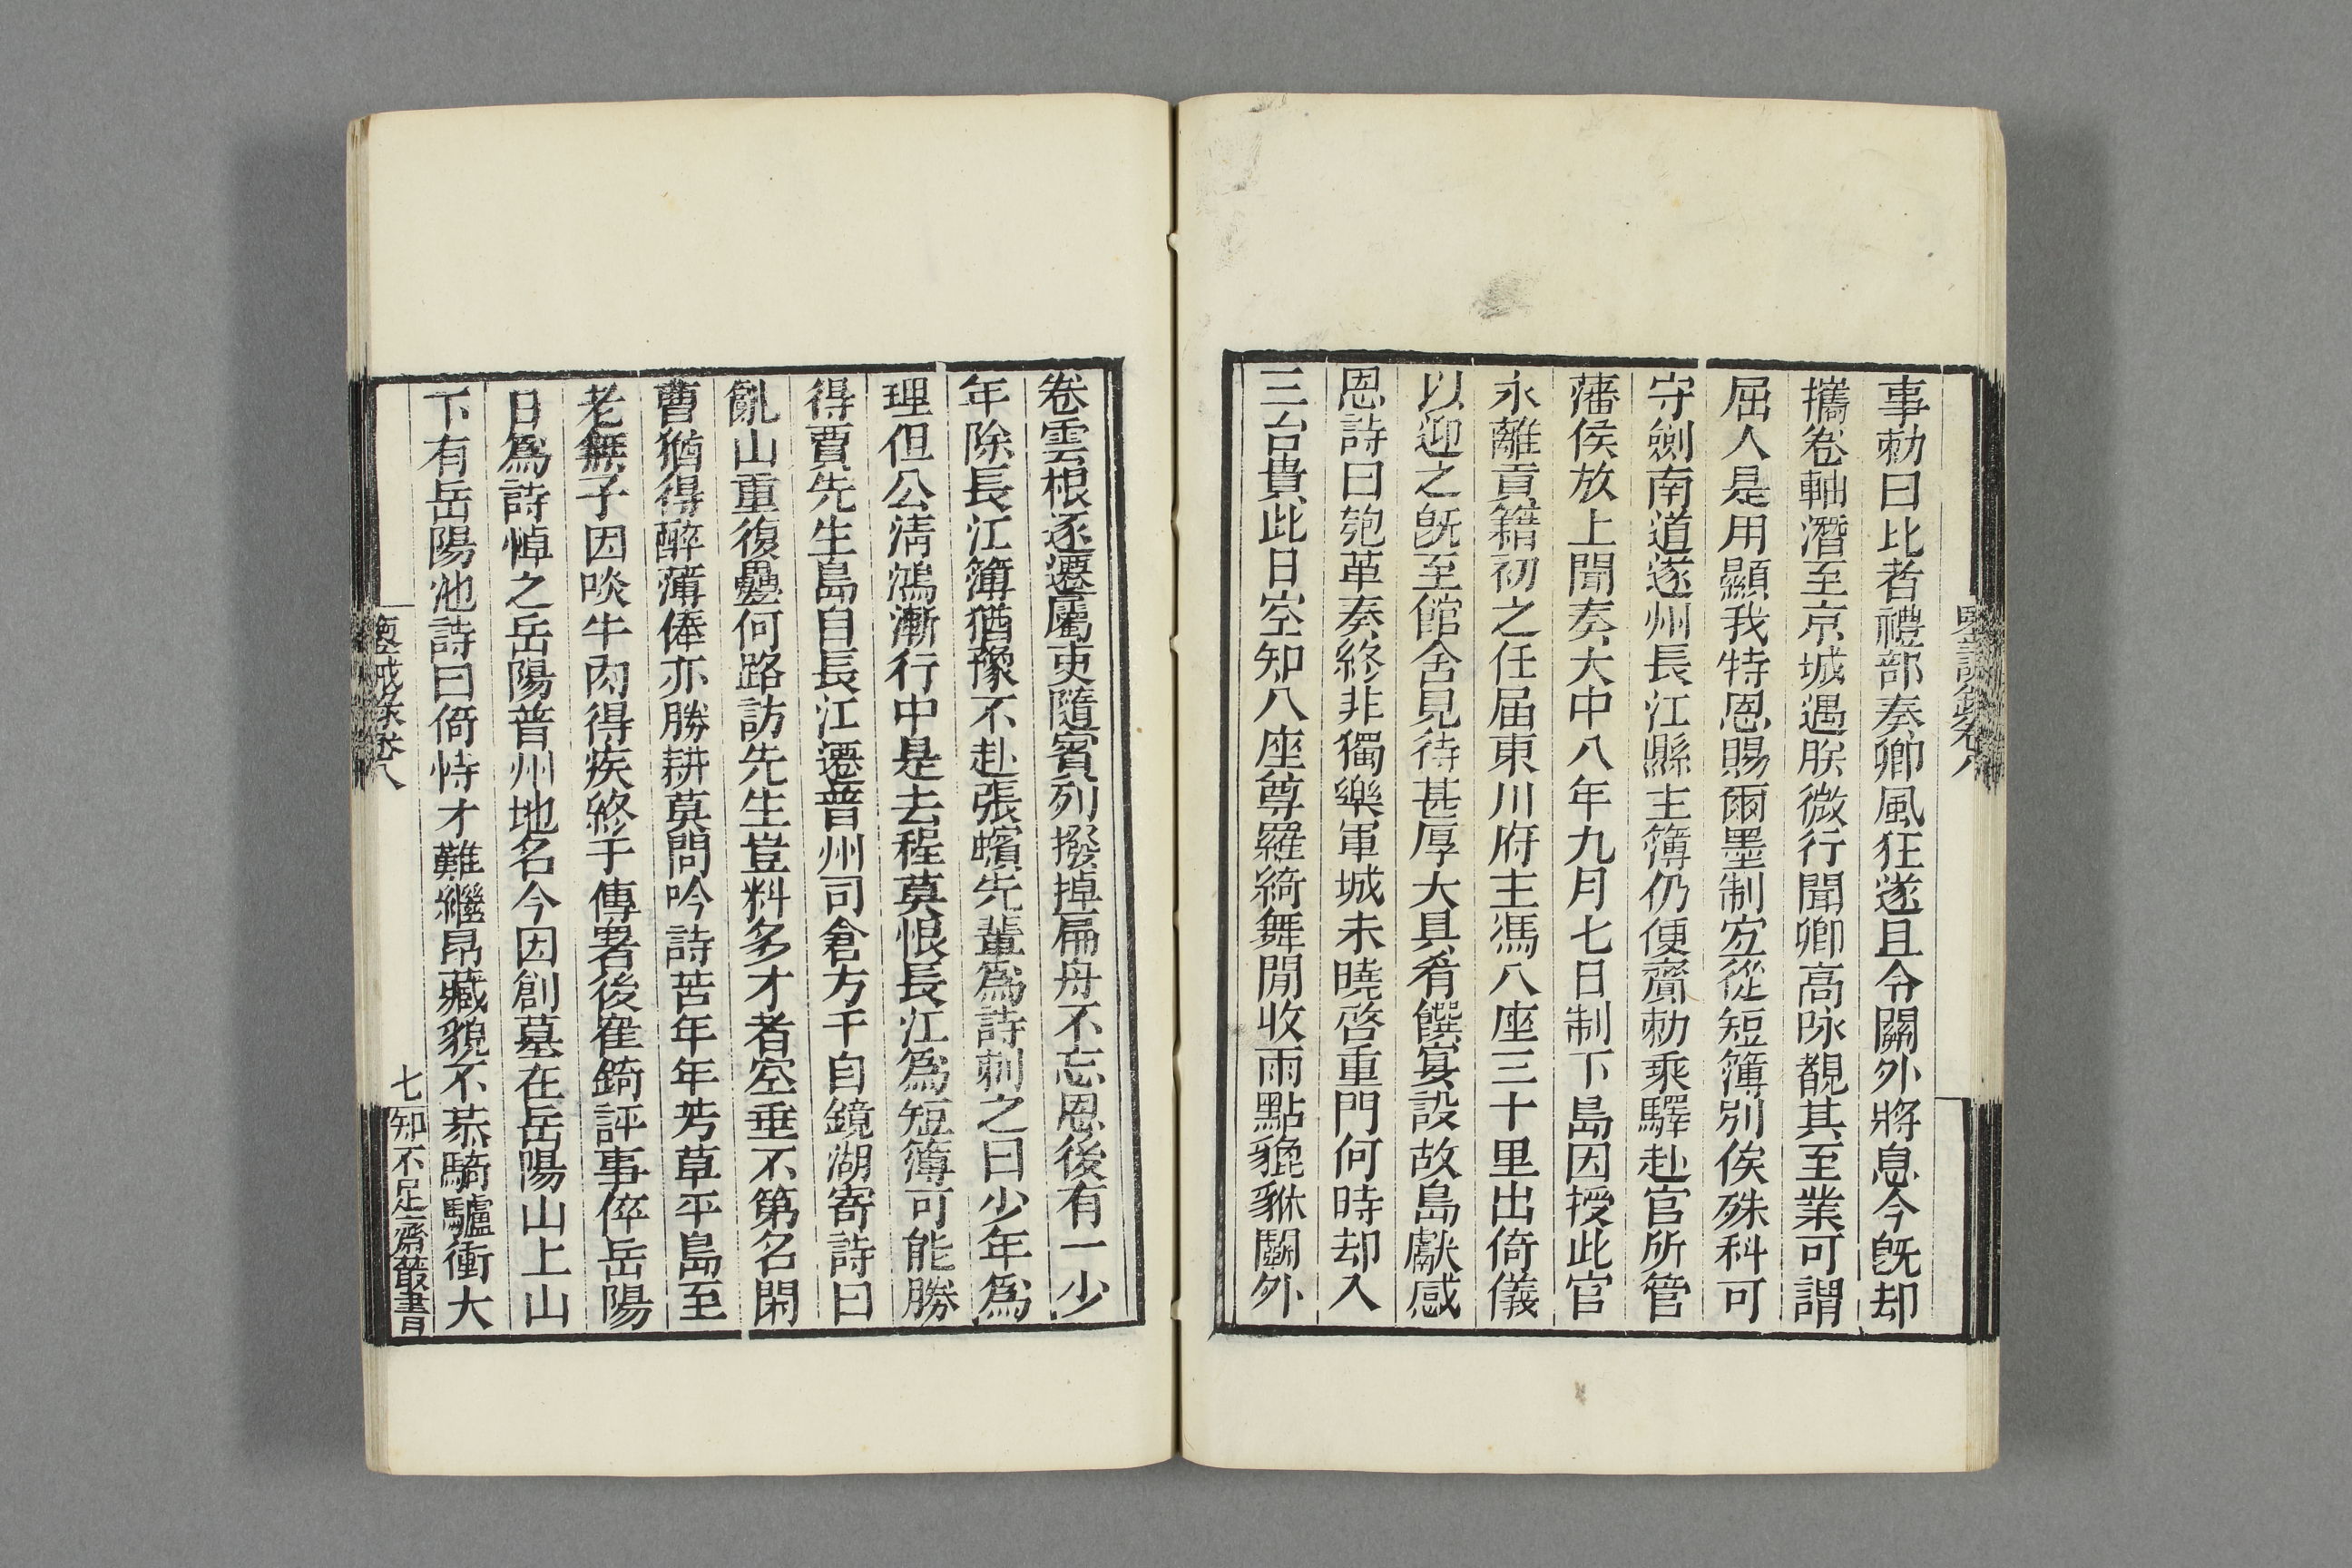 事勅曰比者禮部奏卿風狂遂且令關外將息今旣却
攜卷軸潛至京城遇朕微行聞卿高咏覩其至業可謂
屈人是用顯我特恩賜爾墨制宐從短簿別俟殊科可
守劍南道遂州長江縣主簿仍便齎勅乘驛赴官所管
藩侯放上聞奏大中八年九月七日制下島因授此官
永離貢籍初之任届東川府主馮八座三十里出倚儀
以迎之旣至館舍見待甚厚大具肴饌宴設故島獻感
恩詩曰匏革奏終非獨樂軍城未曉啓重門何時却入
三台貴此日空知八座尊羅綺舞閒收雨點貔貅闘外
卷雲根逐遷屬吏隨賓列撥掉扁舟不忘恩後有一少
年除長江簿猶豫不赴張蠙先輩爲詩刺之曰少年爲
理但公淸鴻漸行中是去程莫恨長江爲短簿可能勝
得賈先生島自長江遷普州司倉方干自鏡湖寄詩曰
亂山重復疊何路訪先生豈料多才者空垂不第名閑
曹猶得醉薄俸亦勝耕莫問吟詩苦年年芳草平島至
老無子因啖牛肉得疾終于傳署後崔錡評事倅岳陽
日爲詩悼之岳陽普州地名今因創墓在岳陽山上山
下有岳陽池詩曰倚恃才難繼昂藏貌不恭騎驢衝大
鑒誡錄卷八
七
知不足齋叢書